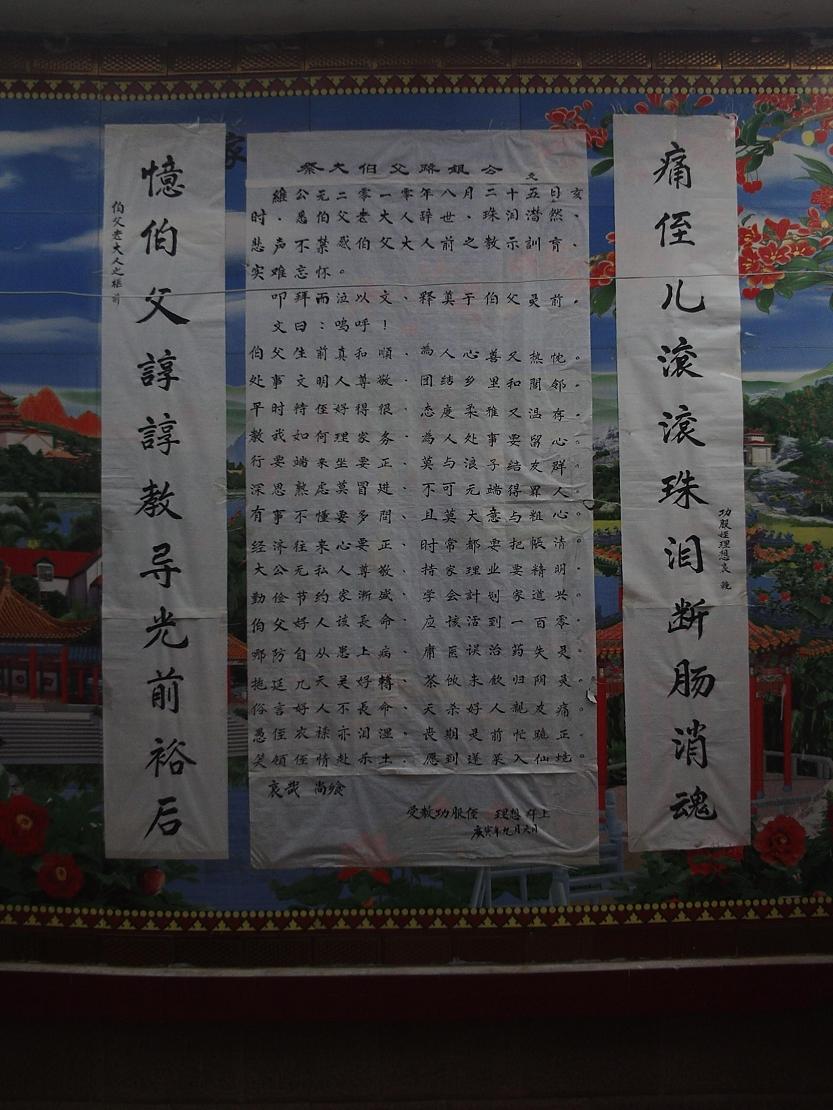 痛侄儿滚滚珠泪断肠消魂
功服侄理想哀挽
祭大伯父疎銀公文
維公元二零一零年八月二十五日亥、
时.愚伯父老大人辞世、珠泪潸然、
悲声不禁感伯父大人前之教示訓育、
实难忘怀。
叩拜而泣以文、释奠于伯父灵前。
文曰:呜呼!
伯父生前真和順、為人心善又热忱。
处事文明人尊敬、团結乡里和閭邻。
平时待侄好得很、态度柔雅又温存。
教我如何理家务、為人处事要留心。
行要端来坐要正、莫与浪子結友群。
深思熟虑莫冒进、不可无端得罪人。
有事不懂要多問、且莫大意与粗心。
经济往来心要正、时常都要把賬清。
大公无私人尊敬、持家理业要精明。
勤俭节约家渐盛、学会計划家道兴。
伯父好人该長命、应该活到一百零。
哪防自从患上病、庸医误治药失灵。
拖延几天关好轉、茶饭未飲归阴灵。
俗言好人不長命、天杀好人親友痛。
愚侄衣禄亦泪湿、丧期是前忙跪正。
哀哉 尚飨
受教功服侄 理想 拜上
庚寅年九月六日
憶伯父諄諄教导光前裕后
伯父老大人之柩前